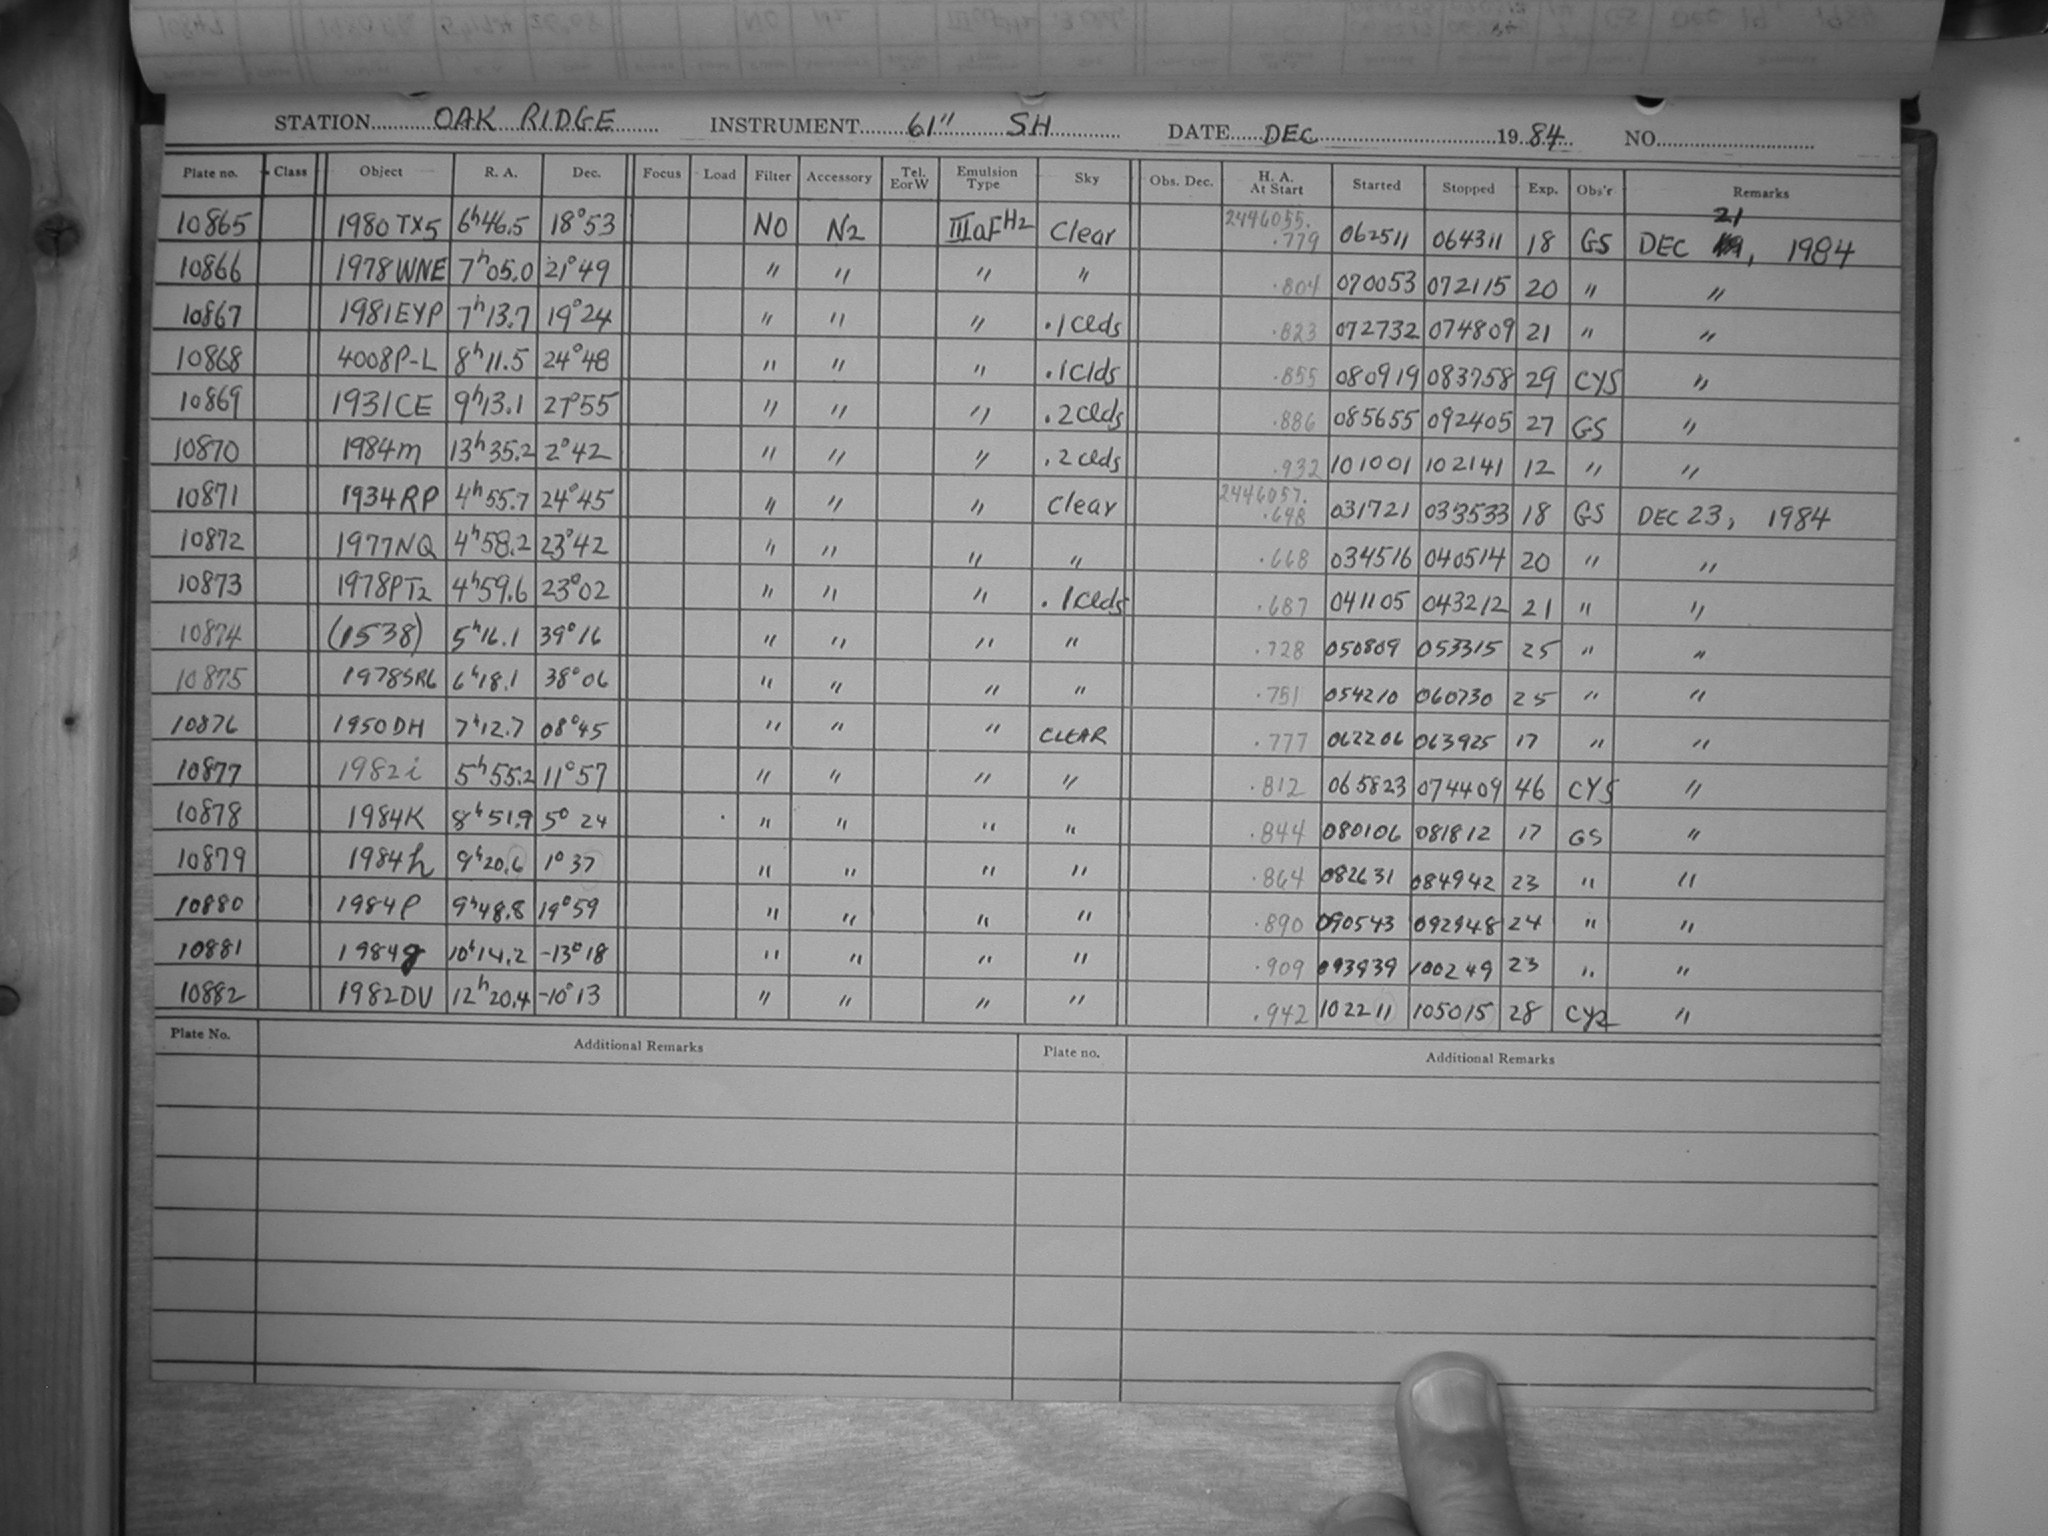 STATION OAK RIDGE INSTRUMENT 61" SH DATE DEC 1984 NO.
Plate no. Class Object R. A. Dec. Focus Load Filter Accessory Tel. E or W Emulsion Type Sky Obs. Dec. H. A. At Start Started Stopped Exp. Obs'r Remarks
10865 1980 TX5 6h46.5 18°53 NO N2 IIIaF H2 Clear 2446055. .779 062511 064311 18 GS DEC 21, 1984
10866 1978WNE 7h05.0 21°49 " " " " .804 070053 072115 20 " "
10867 1981EYP 7h13.7 19°24 " " " .1 Clds .823 072732 074809 21 " "
10868 4008P-L 8h11.5 24°48 " " " .1 Clds .855 080919 083758 29 CYS "
10869 1931CE 9h13.1 27°55 " " " .2 Clds .886 085655 092405 27 GS "
10870 1984m 13h35.2 2°42 " " " .2 Clds .932 101001 102141 12 " "
10871 1934RP 4h55.7 24°45 " " " Clear 2446057. .648 031721 033533 18 GS DEC 23, 1984
10872 1977NQ 4h58.2 23°42 " " " " .668 034516 040514 20 " "
10873 1978PT2 4h59.6 23°02 " " " .1 Clds .687 041105 043212 21 " "
10874 (1538) 5h16.1 39°16 " " " " .728 050809 053315 25 " "
10875 1978SR6 6h18.1 38°06 " " " " .751 054210 060730 25 " "
10876 1950DH 7h12.7 08°45 " " " CLEAR .777 062206 063925 17 " "
10877 1982i 5h55.2 11°57 " " " " .812 065823 074409 46 CYS "
10878 1984K 8h51.9 5° 24 " " " " .844 080106 081812 17 GS "
10879 1984h 9h20.6 1°37 " " " " .864 082631 084942 23 " "
10880 1984P 9h48.8 19°59 " " " " .890 090543 092948 24 " "
10881 1984q 10h14.2 -13°18 " " " " .909 093939 100249 23 " "
10882 1982DV 12h20.4 -10°13 " " " " .942 102211 105015 28 "
Plate No. Additional Remarks Plate no. Additional Remarks